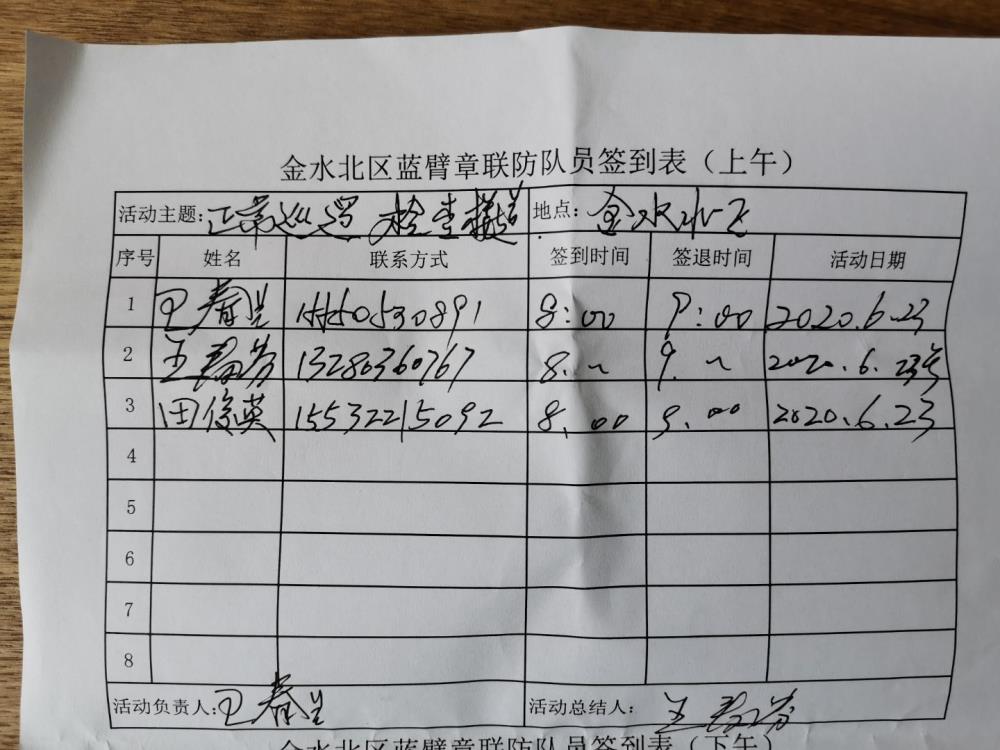 金水北区蓝臂章联防队员签到表（上午）
活动主题:正常巡逻 检查楼道 地点:金水北区
序号 姓名 联系方式 签到时间 签退时间 活动日期
1 王春兰 8:00 9:00 2020.6.23
2 王 13280360767 8.~ 9.~ 2020.6.23号
3 田俊英 15532215092 8.00 9.00 2020.6.23
4
5
6
7
8
活动负责人:王春兰 活动总结人: 王
金水北区蓝臂章联防队员签到表（下午）